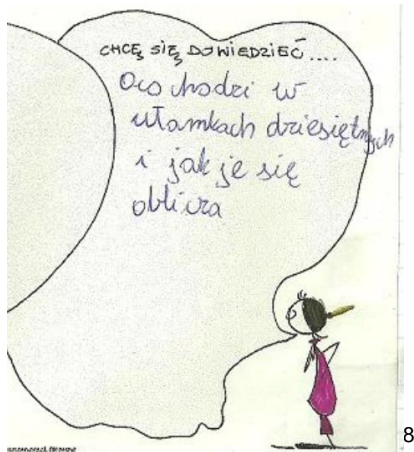 CHCĘ SIĘ DOWIEDZIEĆ....
O co chodzi w
ułamkach dziesiętnych
i jak je się
oblicza
8